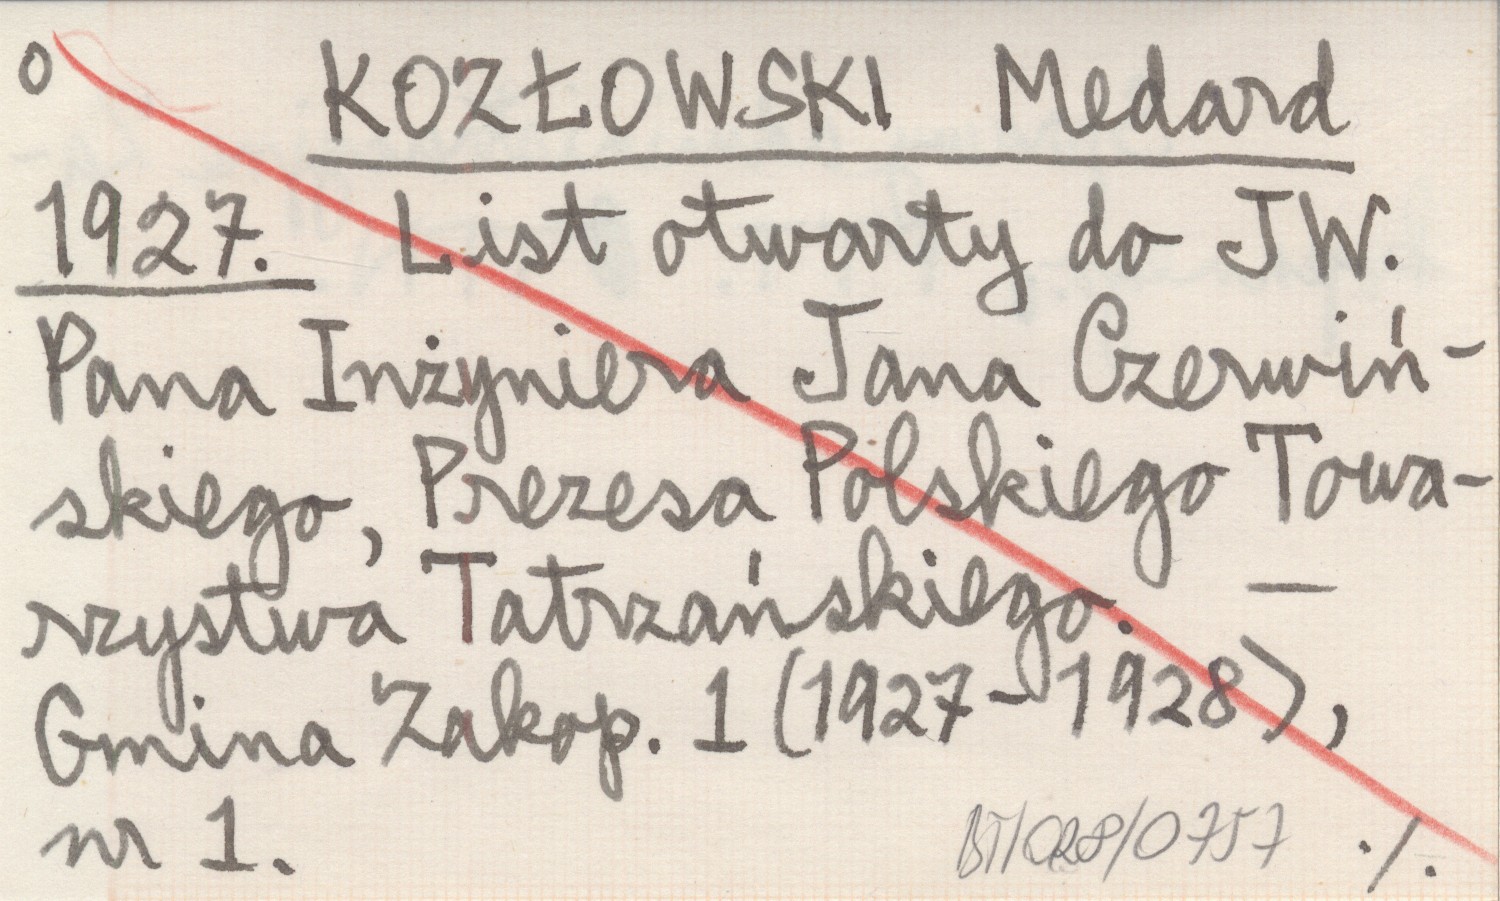 o KOZŁOWSKI Medard
1927. List otwarty do JW.
Pana Inżyniera Jana Czerwiń-
skiego, Prezesa Polskiego Towa-
rzystwa Tatrzańskiego. —
Gmina Zakop. 1 (1927-1928),
nr 1.
BT/028/0757 ./.